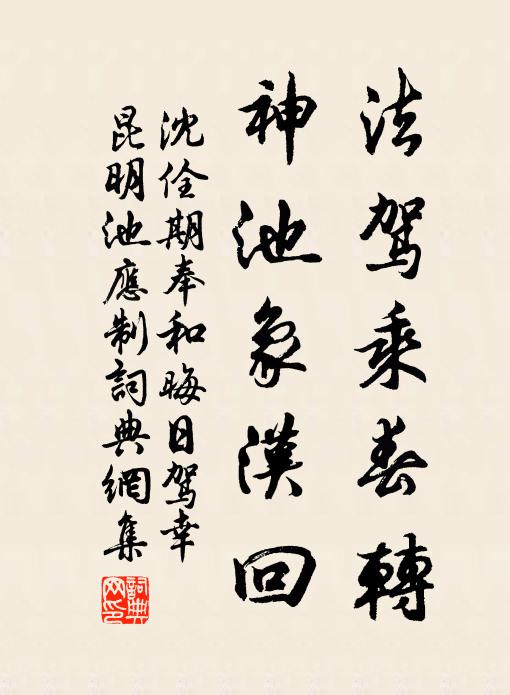 法駕乘春轉
神池象漢回
沈佺期奉和晦日駕幸
昆明池應制詞典網集